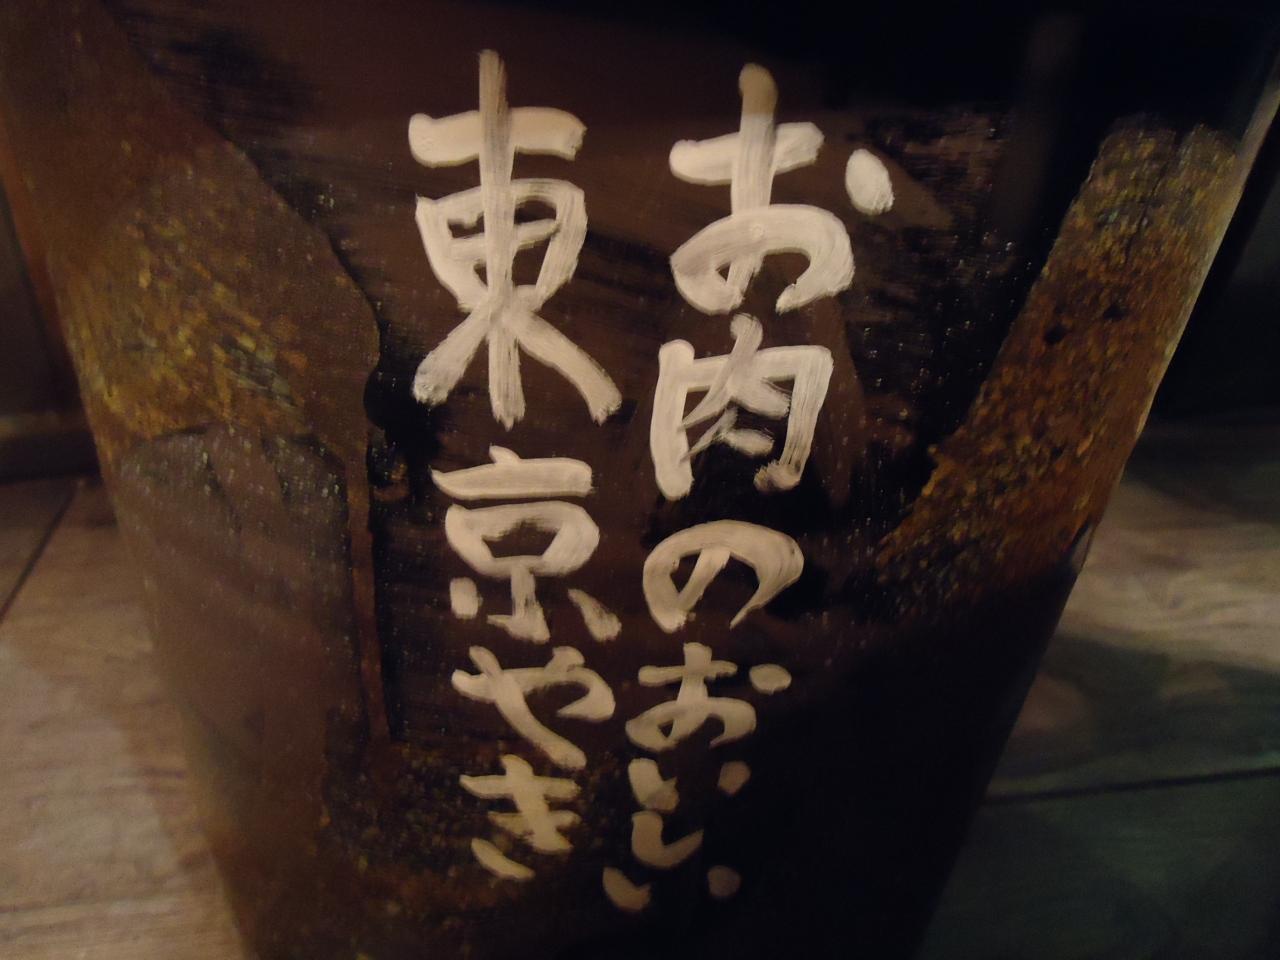 お肉のおいしい
東京やき